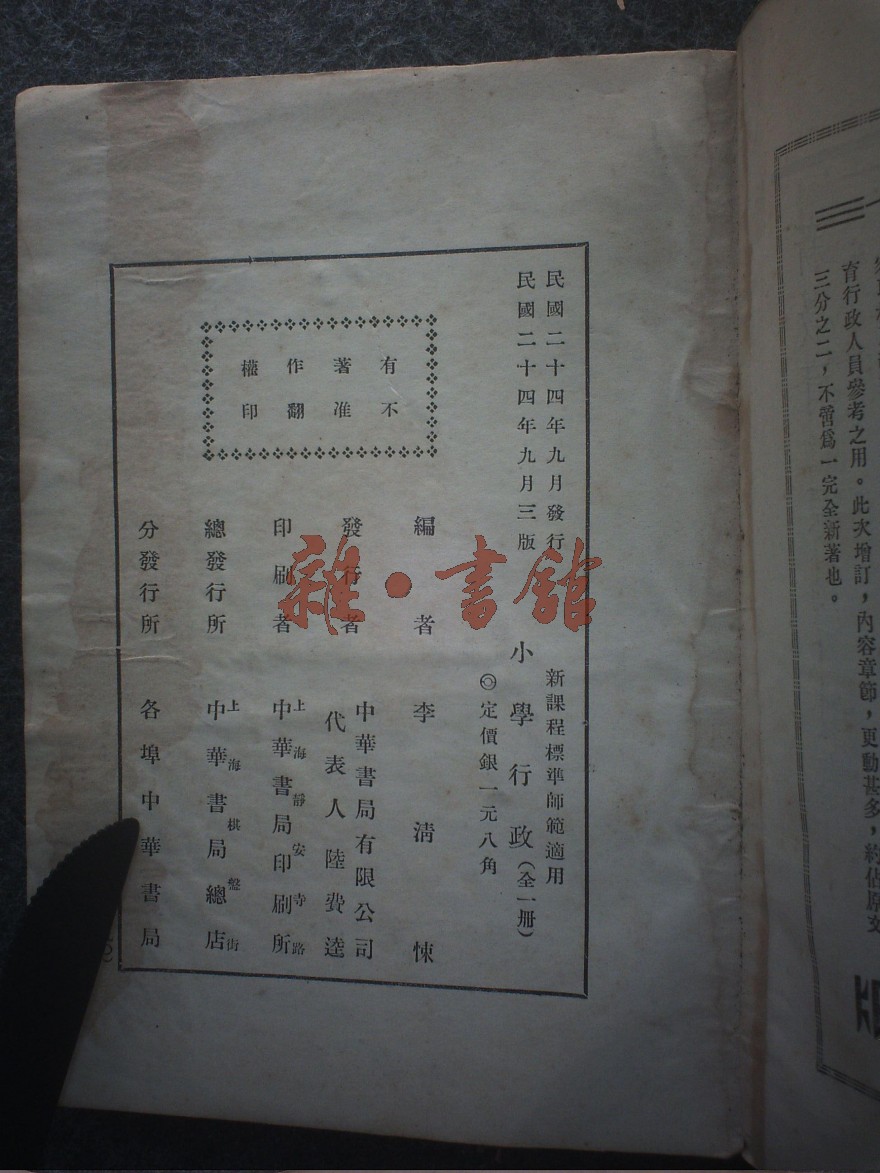 育行政人員參考之用。此次增訂，內容章節，更動甚多，約佔原文
三分之二，不啻爲一完全新著也。
民國二十四年九月發行
民國二十四年九月三版
新課程標準師範適用
小學行政（全一冊）
◎定價銀一元八角
有不
著准
作翻
權印
編者 李清悚
發行者 中華書局有限公司
代表人 陸費逵
印刷者 上海靜安寺路
中華書局印刷所
總發行所 上海棋盤街
中華書局總店
分發行所 各埠中華書局
雜·書館